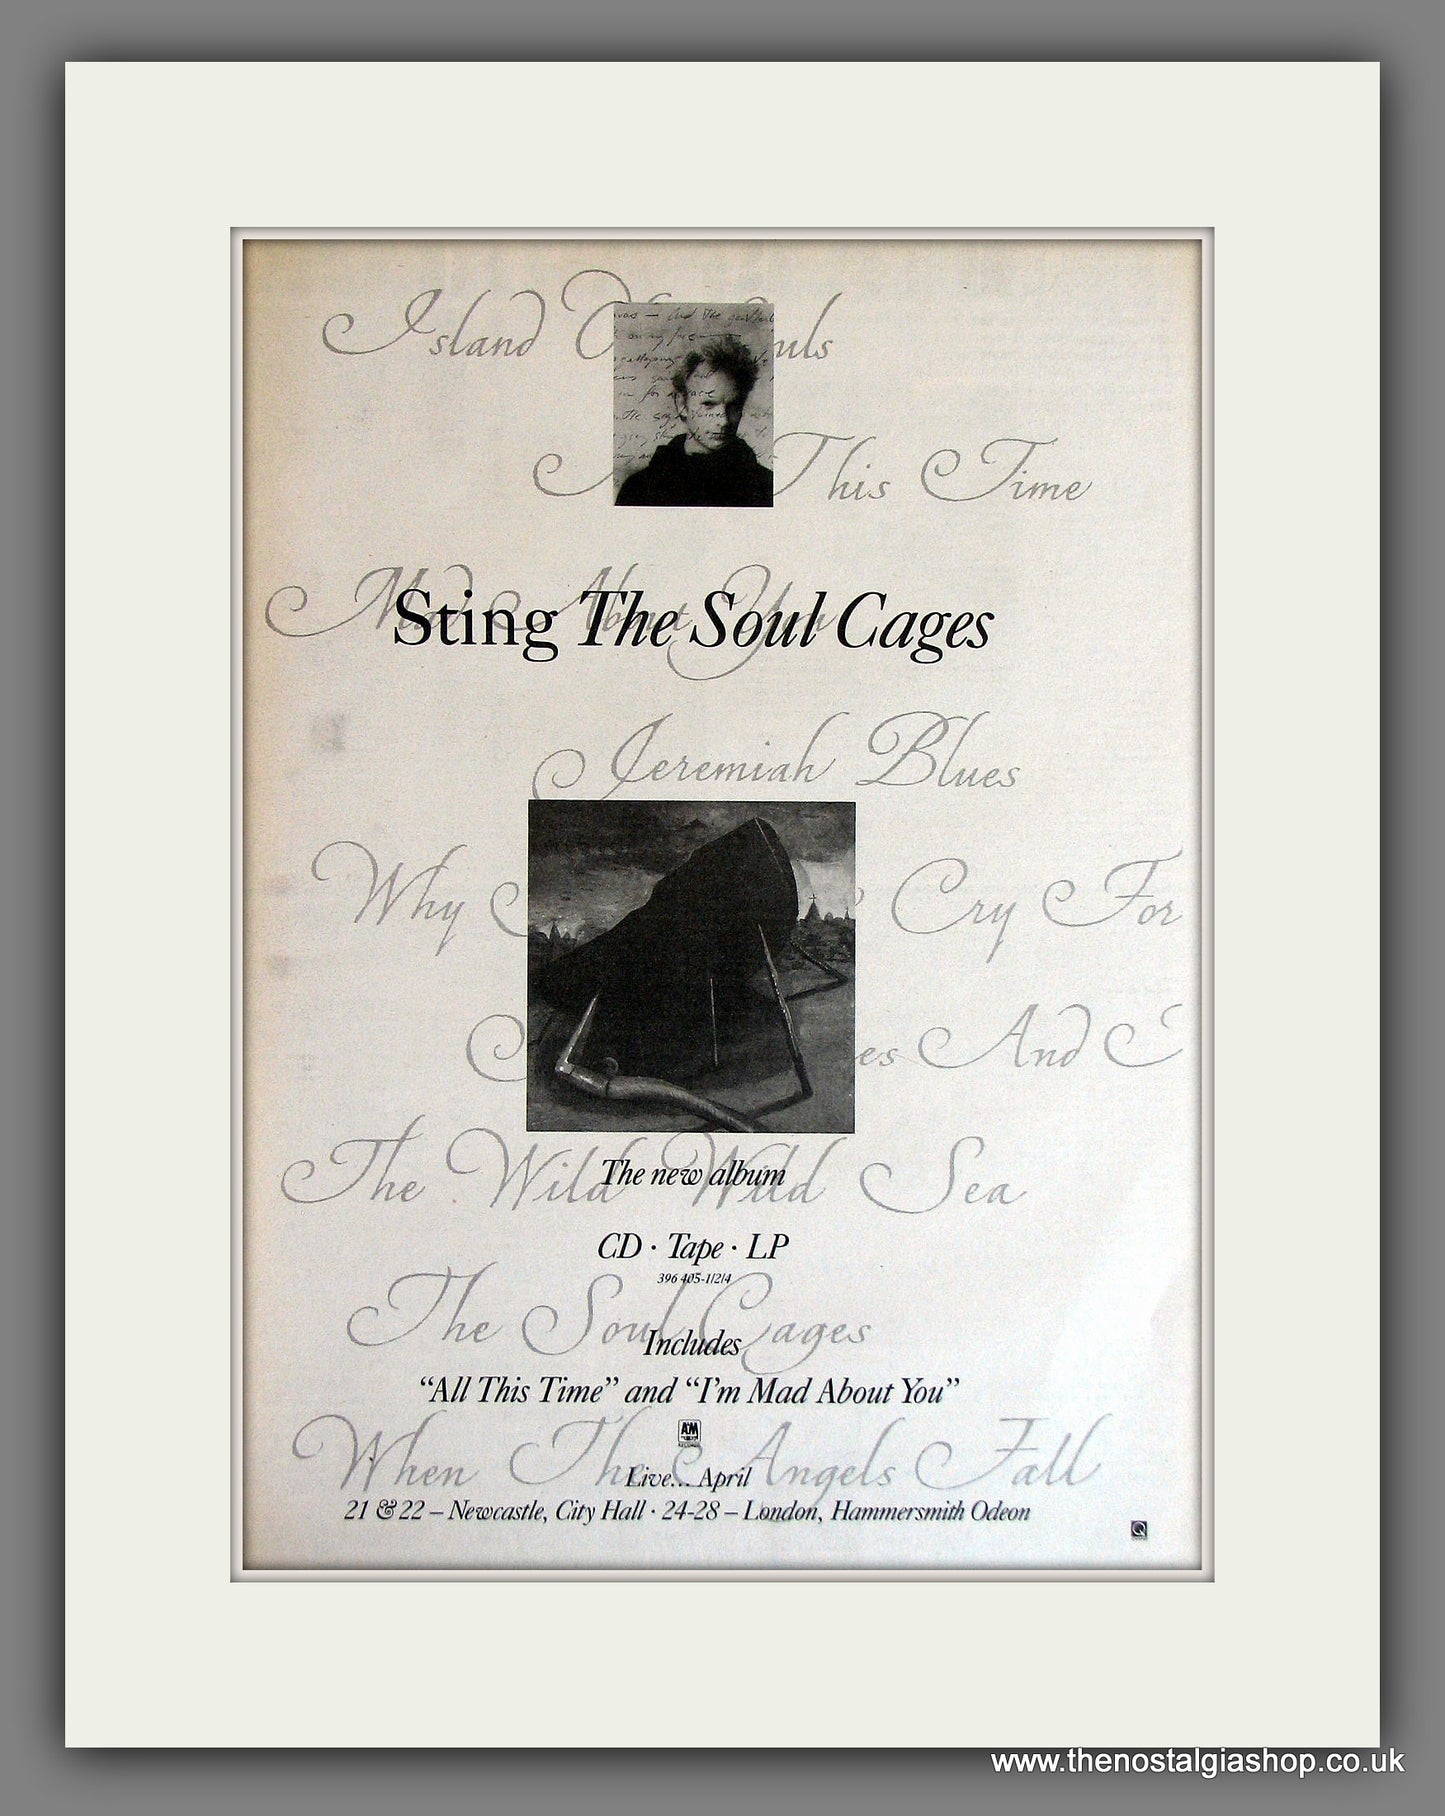 Island Of Souls
This Time
Mad About You
Sting The Soul Cages
Jeremiah Blues
Why Cry For
es And
The Wild Wild Sea
The new album
CD · Tape · LP
396 405-1/2/4
The Soul Cages
Includes
“All This Time” and “I'm Mad About You”
A&M
RECORDS
When The Angels Fall
Live... April
21 & 22 – Newcastle, City Hall · 24-28 – London, Hammersmith Odeon
Q
www.thenostalgiashop.co.uk